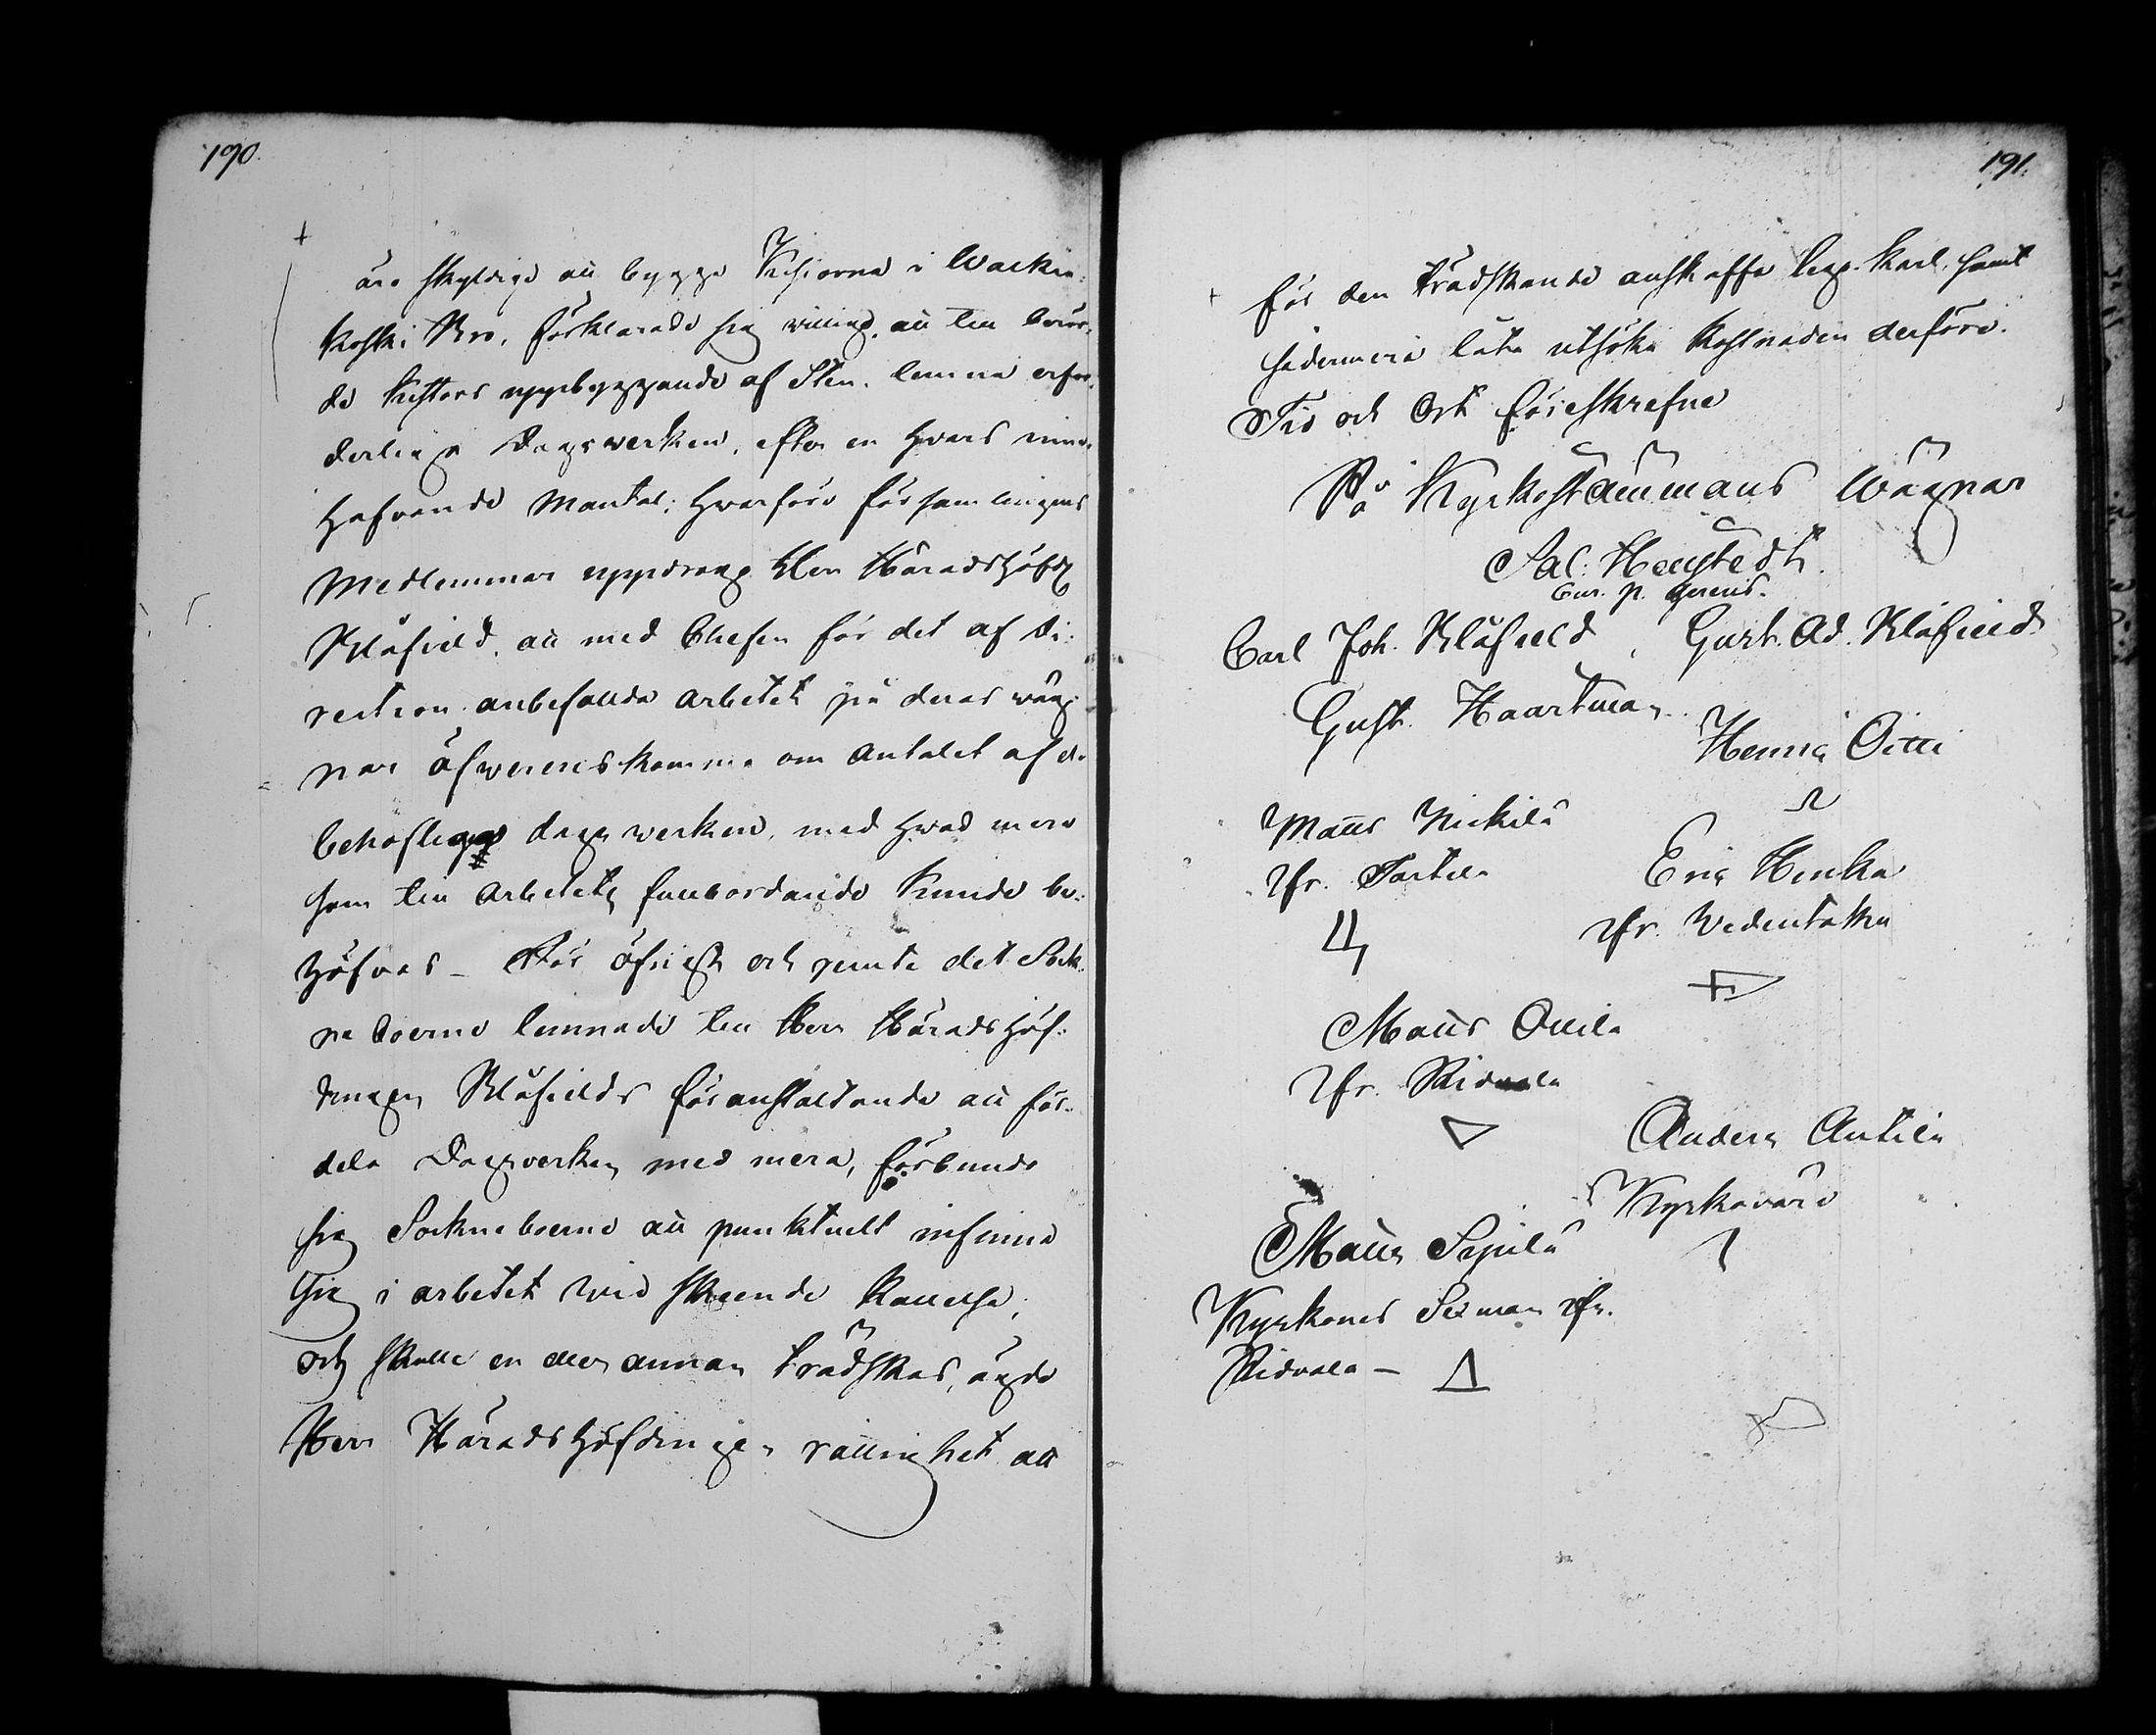 190.
+
äro skyldige att bygga Kistorna i Wackin-
koski Bro, förklarade sig willige att till berör-
de Kistors uppbyggande af Sten, lemna erfor-
derliga Dagswerken, efter en hwars inne-
hafvande Mantal; hwarföre församlingens
Medlemmar uppdrog Herr Häradshöfd.
Blåfield, att med Chefen för det af Di-
rection anbefallda arbetet på deras wäg-
nar öfwerenskomma om antalet af de
behöflige dagswerken, med hwad mera
som till arbetets fullbordande kunde be-
höfvas – För öfrigt och sedan det Sock-
neboerne lemnade till Herr Häradshöf-
dingen Blåfields föranstaltande att för-
dela Dagswerken med mera, förbundo
sig Sockneboerne att punktuelt infinna
sig i arbetet wid skeende kallelse;
och skulle en eller annan trädskas, ägde
Herr Häradshöfdingen rättighet att
191.
+
för den trädskande anskaffa lego-karl, samt
sedermera låta utsöka kostnaden derföre.
Tid och Ort föreskrefne
På Kyrkostämmans wägnar
Sal: Hellstedt.
Cur. p. gerens.
Carl Joh. Blåfield, Gust. Ad. Blåfield
Gust. Haartman
Henric Oitti
Matts Nickilä
ifr. Tartila
Eric Henka
ifr. Wedentaka
Matts Ollila
ifr. Ridvala
Anders Antila
Kyrkovärd
Matts Sepilä
Kyrkones Sexman ifr.
Ridvala –